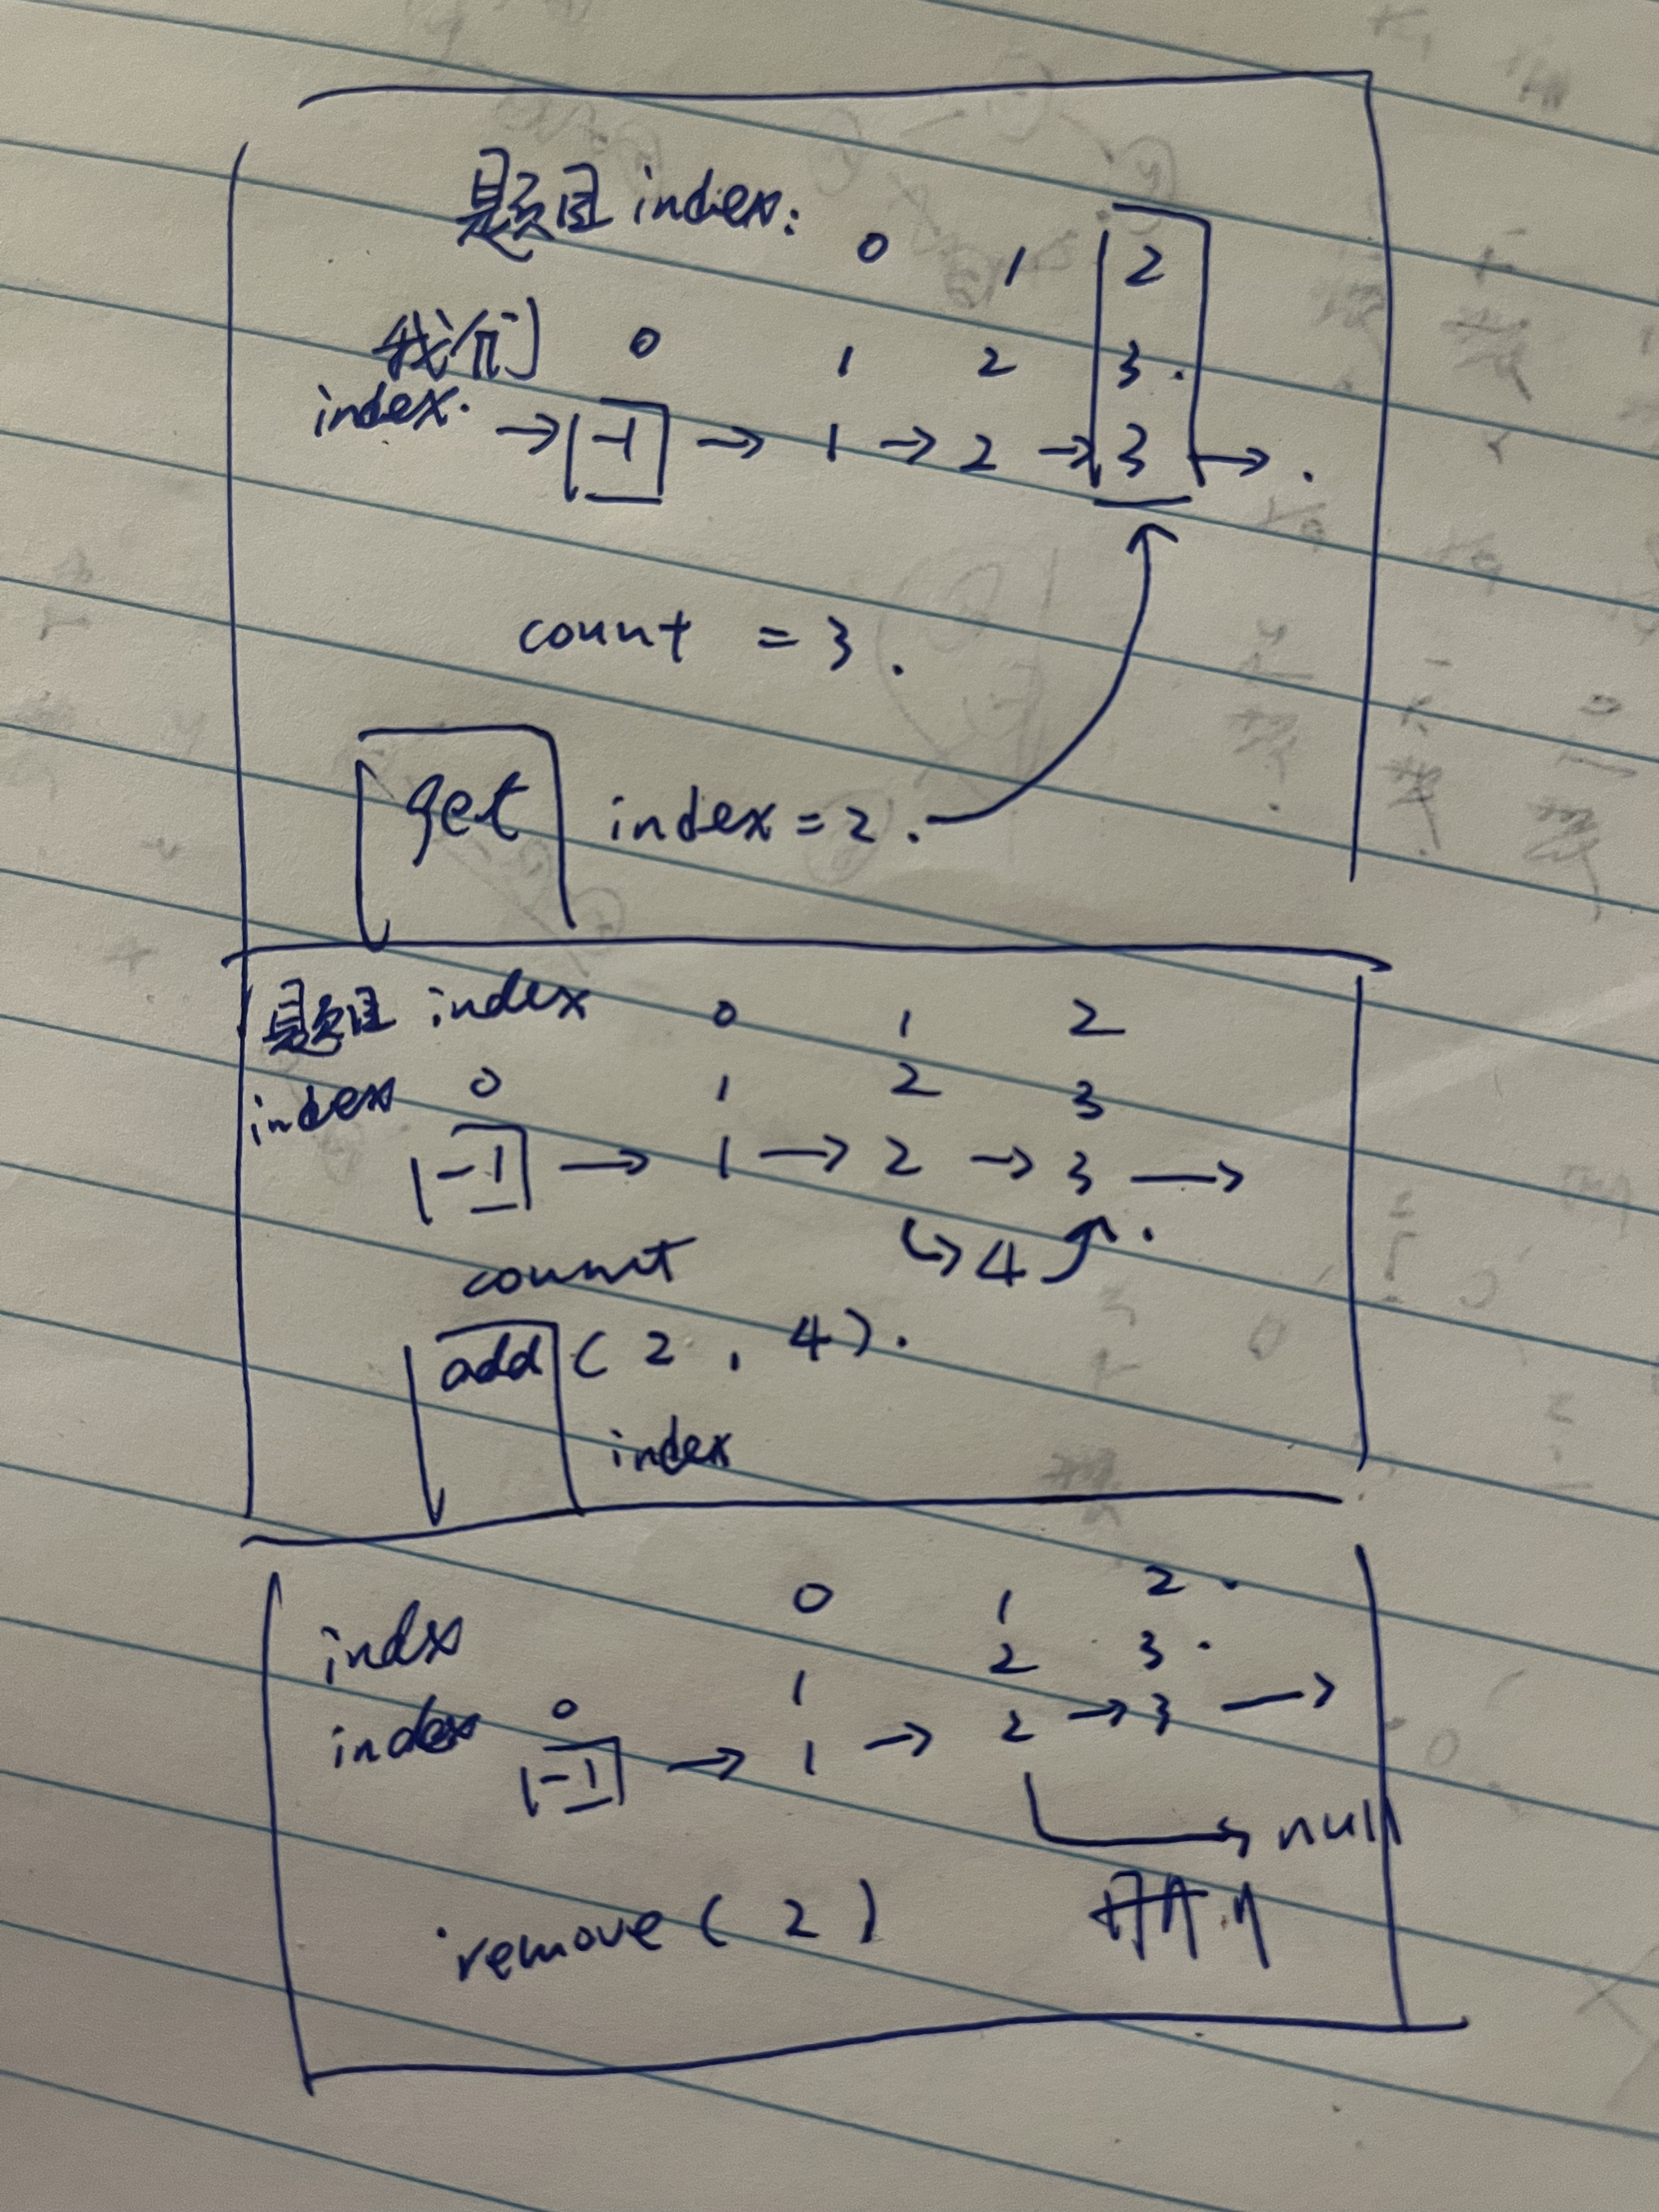 题目 index:
0 1 2
我们 0 1 2 3.
index. → -1 → 1 → 2 → 3 → .
count = 3.
get index = 2.
题目 index 0 1 2
index 0 1 2 3
-1 → 1 → 2 → 3 →
↳ 4
count
add ( 2 , 4 ).
index
indx 0 1 2.
index 0 1 2 3.
-1 → 1 → 2 → 3 →
→ null
remove ( 2 )